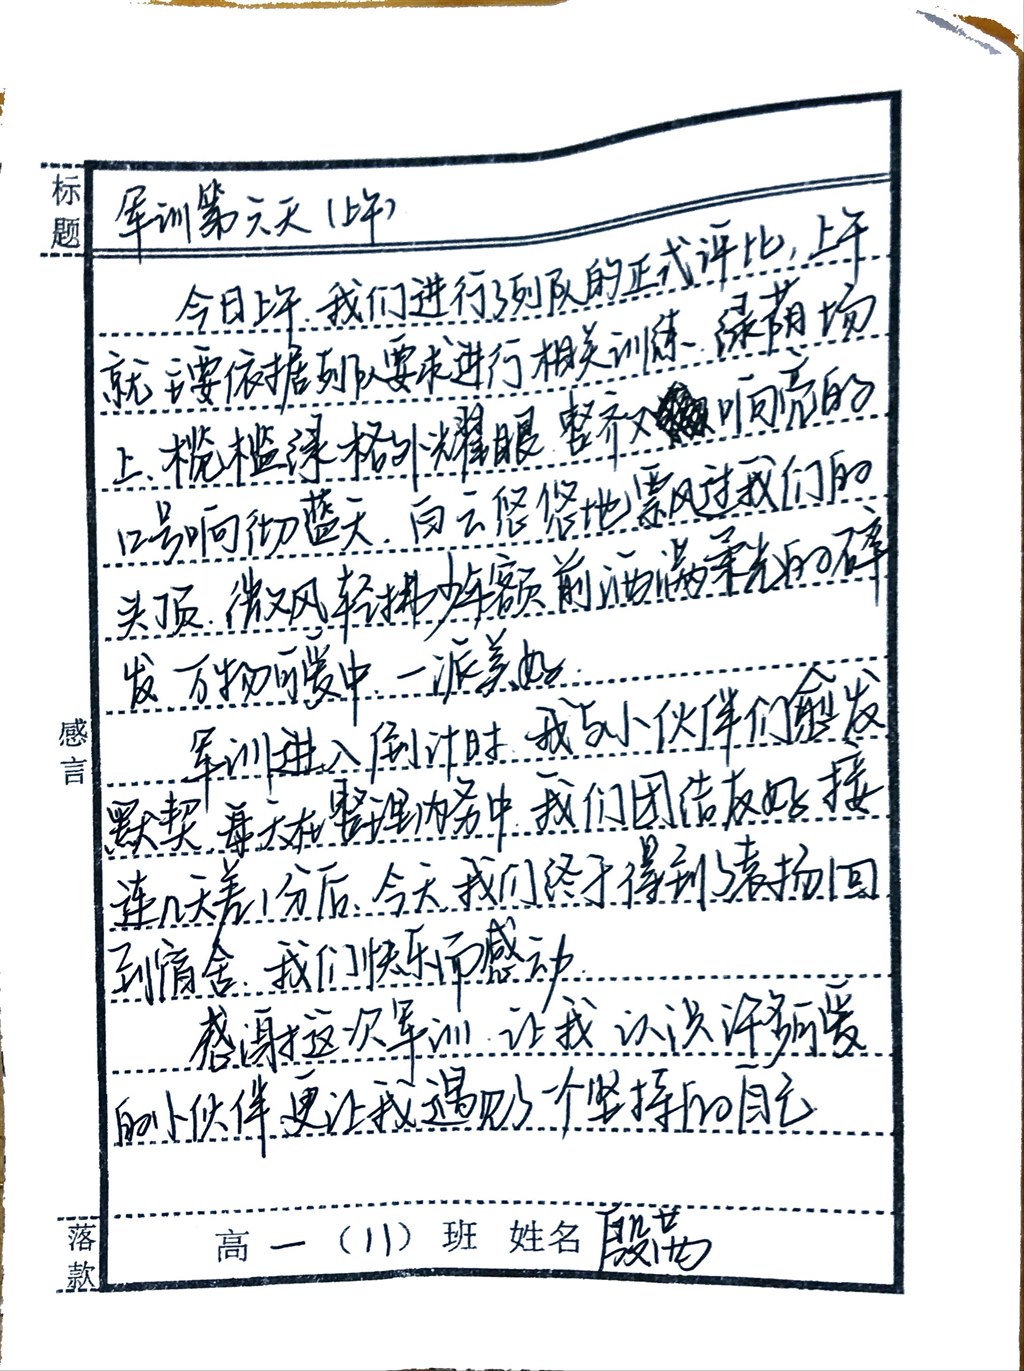 标题
军训第六天(上午)
今日上午,我们进行了列队的正式评比,上午
就主要依据列队要求进行相关训练、绿荫场
上、榄槛绿格外耀眼、整齐又响亮的
口号响彻蓝天、白云悠悠地飘过我们的
头顶、微风轻拂少年额前洒满柔光的碎
发 万物可爱中、一派美好.
感言
军训进入倒计时、我与小伙伴们愈发
默契、每天在整理内务中、我们团结友好、接
连几天差1分后、今天我们终于得到了表扬、回
到宿舍、我们快乐而感动.
感谢这次军训、让我认识许多可爱
的小伙伴、更让我遇见了一个坚持的自己
落款
高一(11)班 姓名 殷